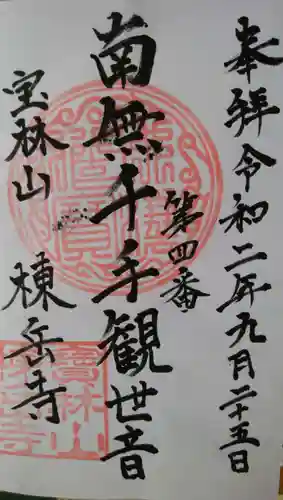 奉拝 令和二年九月二十五日
第四番
南無千手観世音
宝林山 棟岳寺